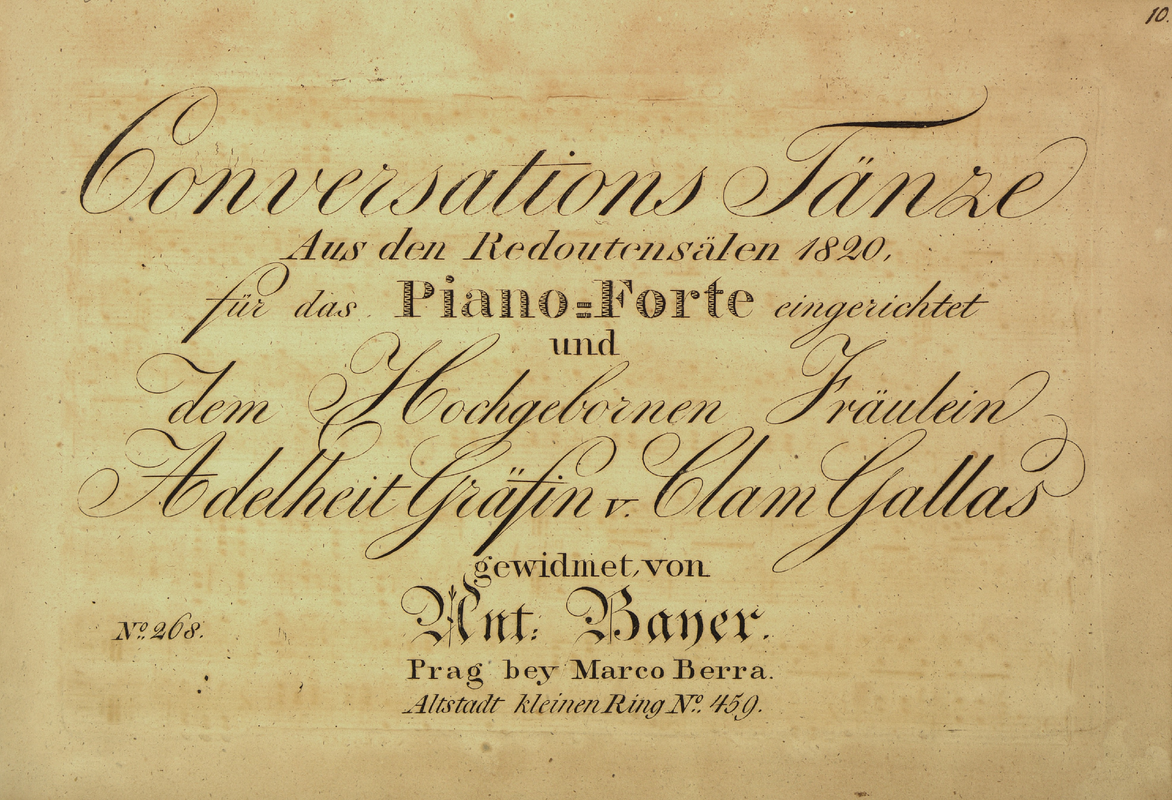 10.
Conversations Tänze
Aus den Redoutensälen 1820,
für das Piano=Forte eingerichtet
und
dem Hochgebornen Fräulein
Adelheit Gräfin v. Clam Gallas
gewidmet, von
Ant: Bayer.
No. 268.
Prag bey Marco Berra.
Altstadt kleinen Ring No. 459.